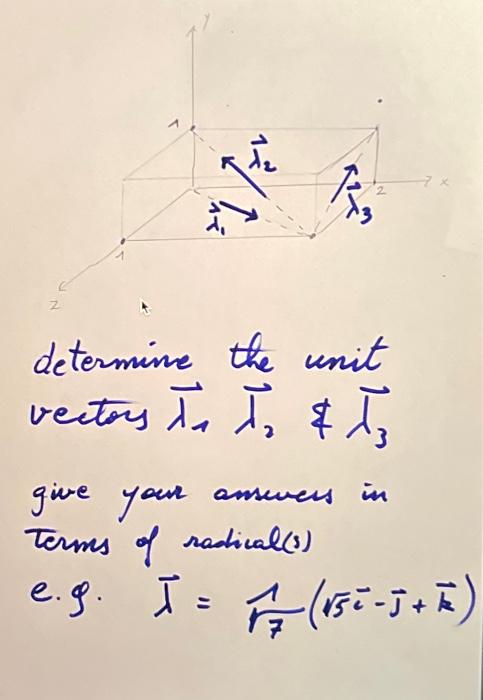 y
1
λ⃗₂
x
2
λ⃗₁
λ⃗₃
1
z
determine the unit
vectors λ⃗₁ λ⃗₂ & λ⃗₃
give your answers in
terms of radical(s)
e.g. λ⃗ = 1/√7 (√5 i⃗ - j⃗ + k⃗)